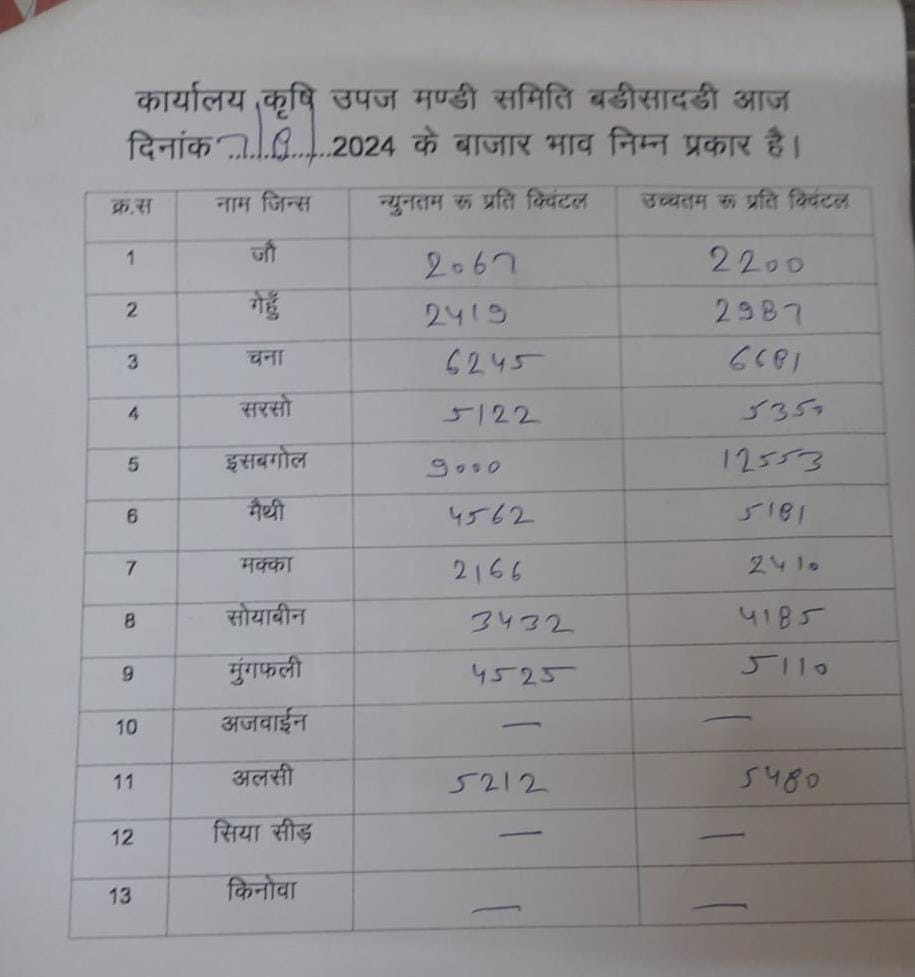 कार्यालय कृषि उपज मण्डी समिति बडीसादडी आज
दिनांक 7/8/2024 के बाजार भाव निम्न प्रकार है।
क्र.स नाम जिन्स न्युनतम रू प्रति क्विंटल उच्चतम रू प्रति क्विंटल
1 जौ 2067 2200
2 गेहुँ 2419 2987
3 चना 6245 6681
4 सरसो 5122 5350
5 इसबगोल 9000 12553
6 मैथी 4562 5181
7 मक्का 2166 2410
8 सोयाबीन 3432 4185
9 मुंगफली 4525 5110
10 अजवाईन — —
11 अलसी 5212 5480
12 सिया सीड़ — —
13 किनोवा — —